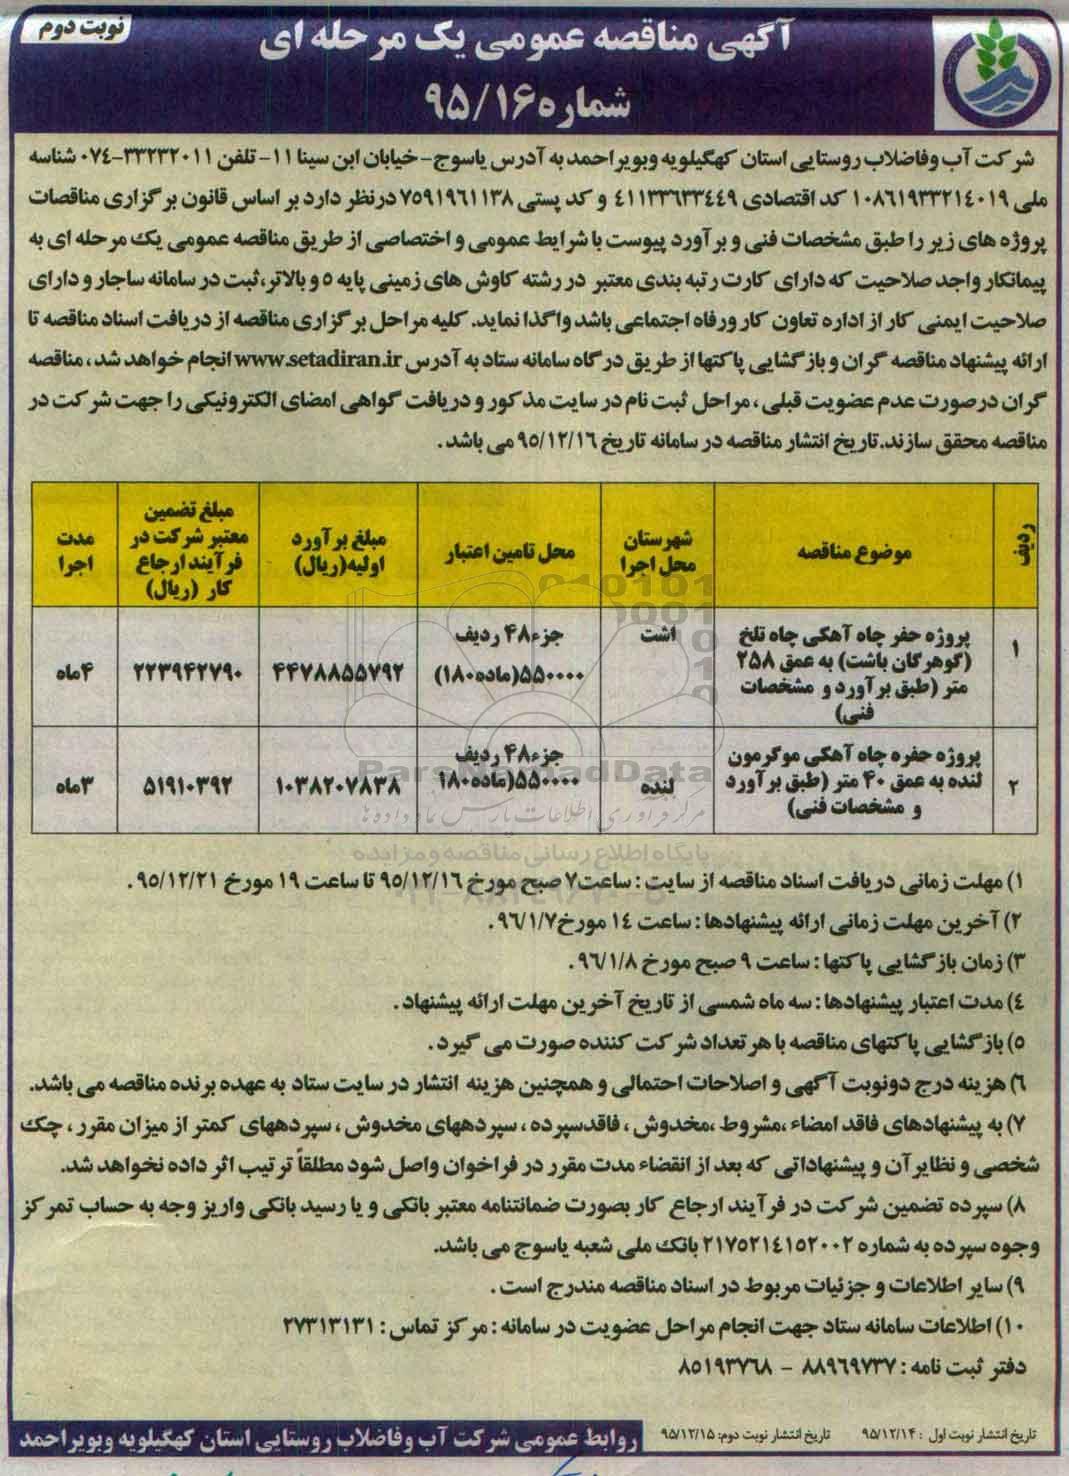 نوبت دوم
آگهی مناقصه عمومی یک مرحله ای
شماره ۹۵/۱۶
شرکت آب وفاضلاب روستایی استان کهگیلویه وبویراحمد به آدرس یاسوج-خیابان ابن سینا ۱۱- تلفن ۳۳۲۳۲۰۱۱-۰۷۴ شناسه
ملی ۱۰۸۶۱۹۳۳۲۱۴۰۱۹ کد اقتصادی ۴۱۱۳۳۶۳۳۴۴۹ و کد پستی ۷۵۹۱۹۶۱۱۳۸ درنظر دارد بر اساس قانون برگزاری مناقصات
پروژه های زیر را طبق مشخصات فنی و برآورد پیوست با شرایط عمومی و اختصاصی از طریق مناقصه عمومی یک مرحله ای به
پیمانکار واجد صلاحیت که دارای کارت رتبه بندی معتبر در رشته کاوش های زمینی پایه ۵ و بالاتر،ثبت در سامانه ساجار و دارای
صلاحیت ایمنی کار از اداره تعاون کار ورفاه اجتماعی باشد واگذا نماید. کلیه مراحل برگزاری مناقصه از دریافت اسناد مناقصه تا
ارائه پیشنهاد مناقصه گران و بازگشایی پاکتها از طریق درگاه سامانه ستاد به آدرس www.setadiran.ir انجام خواهد شد، مناقصه
گران درصورت عدم عضویت قبلی ، مراحل ثبت نام در سایت مذکور و دریافت گواهی امضای الکترونیکی را جهت شرکت در
مناقصه محقق سازند.تاریخ انتشار مناقصه در سامانه تاریخ ۹۵/۱۲/۱۶ می باشد .
ردیف
موضوع مناقصه
شهرستان
محل اجرا
محل تامین اعتبار
مبلغ برآورد
اولیه(ریال)
مبلغ تضمین
معتبر شرکت در
فرآیند ارجاع
کار (ریال)
مدت
اجرا
۱
پروژه حفر چاه آهکی چاه تلخ
(گوهرگان باشت) به عمق ۲۵۸
متر (طبق برآورد و مشخصات
فنی)
اشت
جزء۴۸ ردیف
۵۵۰۰۰۰(ماده۱۸۰)
۴۴۷۸۸۵۵۷۹۲
۲۲۳۹۴۲۷۹۰
۴ماه
۲
پروژه حفره چاه آهکی موگرمون
لنده به عمق ۴۰ متر (طبق برآورد
و مشخصات فنی)
لنده
جزء۴۸ ردیف
۵۵۰۰۰۰(ماده۱۸۰
۱۰۳۸۲۰۷۸۳۸
۵۱۹۱۰۳۹۲
۳ماه
ParsNamadData
مرکز فرآوری اطلاعات پارس نماد داده ها
پایگاه اطلاع رسانی مناقصه و مزایده
۱) مهلت زمانی دریافت اسناد مناقصه از سایت : ساعت۷ صبح مورخ ۹۵/۱۲/۱۶ تا ساعت ۱۹ مورخ ۹۵/۱۲/۲۱ .
۲) آخرین مهلت زمانی ارائه پیشنهادها : ساعت ۱۴ مورخ۹۶/۱/۷ .
۳) زمان بازگشایی پاکتها : ساعت ۹ صبح مورخ ۹۶/۱/۸ .
۴) مدت اعتبار پیشنهادها : سه ماه شمسی از تاریخ آخرین مهلت ارائه پیشنهاد .
۵) بازگشایی پاکتهای مناقصه با هر تعداد شرکت کننده صورت می گیرد .
۶) هزینه درج دونوبت آگهی و اصلاحات احتمالی و همچنین هزینه انتشار در سایت ستاد به عهده برنده مناقصه می باشد.
۷) به پیشنهادهای فاقد امضاء ،مشروط ،مخدوش ، فاقدسپرده ، سپردههای مخدوش ، سپردههای کمتر از میزان مقرر ، چک
شخصی و نظایر آن و پیشنهاداتی که بعد از انقضاء مدت مقرر در فراخوان واصل شود مطلقاً ترتیب اثر داده نخواهد شد.
۸) سپرده تضمین شرکت در فرآیند ارجاع کار بصورت ضمانتنامه معتبر بانکی و یا رسید بانکی واریز وجه به حساب تمرکز
وجوه سپرده به شماره ۲۱۷۵۲۱۴۱۵۲۰۰۲ بانک ملی شعبه یاسوج می باشد.
۹) سایر اطلاعات و جزئیات مربوط در اسناد مناقصه مندرج است .
۱۰) اطلاعات سامانه ستاد جهت انجام مراحل عضویت در سامانه : مرکز تماس : ۲۷۳۱۳۱۳۱
دفتر ثبت نامه : ۸۸۹۶۹۷۳۷ - ۸۵۱۹۳۷۶۸
تاریخ انتشار نوبت اول : ۹۵/۱۲/۱۴ تاریخ انتشار نوبت دوم: ۹۵/۱۲/۱۵
روابط عمومی شرکت آب وفاضلاب روستایی استان کهگیلویه وبویراحمد